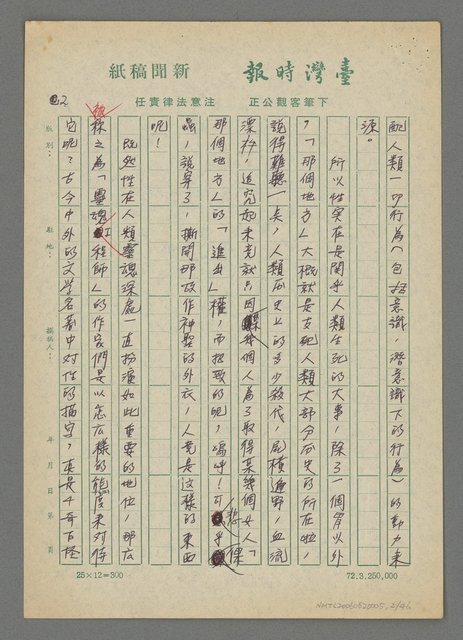 臺灣時報 新聞稿紙
下筆客觀公正 注意法律責任
2
配人類一切行為(包括意識,潛意識下的行為)的動力來
源。
所以性實在是關乎人類生死的大事,除了一個胃以外
,「那個地方」大概就是支配人類大部分歷史的所在啦,
說得難聽一點,人類歷史上的多少殺伐,屍橫遍野,血流
漂杵,追究起來竟就只因幾個人為了取得某幾個女人「
那個地方」的「進出」權,而招致的呢,嗚呼!可悲乎
蟲,說穿了,撕開那故作神聖的外衣,人竟是這樣的東西
呢!
既然性在人類靈魂深處一直扮演如此重要的地位,那麼
被稱之為「靈魂工程師」的作家們是以怎麼樣的態度來對待
它呢?古今中外的文學名著中對性的描寫,真是千奇百怪
版別:
駐地:
撰稿人:
年 月 日 第 頁
25×12=300
72.3.250,000
NMTL20060520005, 2/46